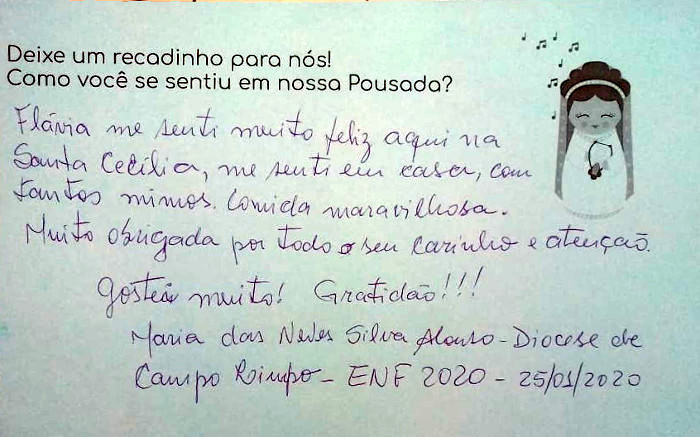 Deixe um recadinho para nós!
Como você se sentiu em nossa Pousada?
Flávia me senti muito feliz aqui na
Santa Cecília, me senti em casa, com
tantos mimos. Comida maravilhosa.
Muito obrigada por todo o seu carinho e atenção.
Gostei muito! Gratidão!!!
Maria das Neves Silva Alonso - Diocese de
Campo Limpo - ENF 2020 - 25/01/2020